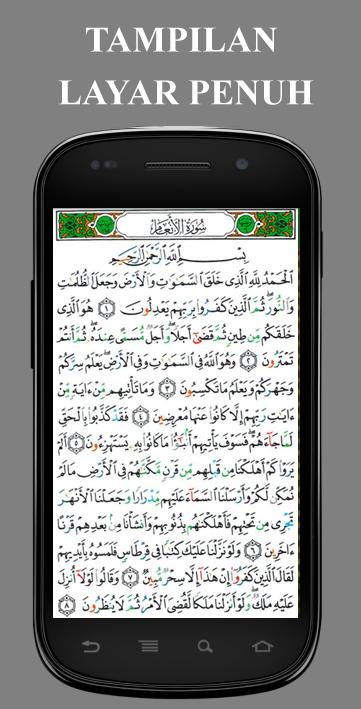 TAMPILAN
LAYAR PENUH
سُورَةُ الأَنْعَامِ
بِسْمِ اللَّهِ الرَّحْمَٰنِ الرَّحِيمِ
الْحَمْدُ لِلَّهِ الَّذِي خَلَقَ السَّمَاوَاتِ وَالْأَرْضَ وَجَعَلَ الظُّلُمَاتِ
وَالنُّورَ ۖ ثُمَّ الَّذِينَ كَفَرُوا بِرَبِّهِمْ يَعْدِلُونَ ۝١ هُوَ الَّذِي
خَلَقَكُم مِّن طِينٍ ثُمَّ قَضَىٰ أَجَلًا ۖ وَأَجَلٌ مُّسَمًّى عِندَهُ ۖ ثُمَّ أَنتُمْ
تَمْتَرُونَ ۝٢ وَهُوَ اللَّهُ فِي السَّمَاوَاتِ وَفِي الْأَرْضِ ۖ يَعْلَمُ سِرَّكُمْ
وَجَهْرَكُمْ وَيَعْلَمُ مَا تَكْسِبُونَ ۝٣ وَمَا تَأْتِيهِم مِّنْ ءَايَةٍ مِّنْ
ءَايَاتِ رَبِّهِمْ إِلَّا كَانُوا عَنْهَا مُعْرِضِينَ ۝٤ فَقَدْ كَذَّبُوا بِالْحَقِّ
لَمَّا جَاءَهُمْ ۖ فَسَوْفَ يَأْتِيهِمْ أَنبَاءُ مَا كَانُوا بِهِ يَسْتَهْزِءُونَ ۝٥ أَلَمْ
يَرَوْا كَمْ أَهْلَكْنَا مِن قَبْلِهِم مِّن قَرْنٍ مَّكَّنَّاهُمْ فِي الْأَرْضِ مَا لَمْ
نُمَكِّن لَّكُمْ وَأَرْسَلْنَا السَّمَاءَ عَلَيْهِم مِّدْرَارًا وَجَعَلْنَا الْأَنْهَارَ
تَجْرِي مِن تَحْتِهِمْ فَأَهْلَكْنَاهُم بِذُنُوبِهِمْ وَأَنشَأْنَا مِن بَعْدِهِمْ قَرْنًا
ءَاخَرِينَ ۝٦ وَلَوْ نَزَّلْنَا عَلَيْكَ كِتَابًا فِي قِرْطَاسٍ فَلَمَسُوهُ بِأَيْدِيهِمْ
لَقَالَ الَّذِينَ كَفَرُوا إِنْ هَٰذَا إِلَّا سِحْرٌ مُّبِينٌ ۝٧ وَقَالُوا لَوْلَا أُنزِلَ
عَلَيْهِ مَلَكٌ ۖ وَلَوْ أَنزَلْنَا مَلَكًا لَّقُضِيَ الْأَمْرُ ثُمَّ لَا يُنظَرُونَ ۝٨